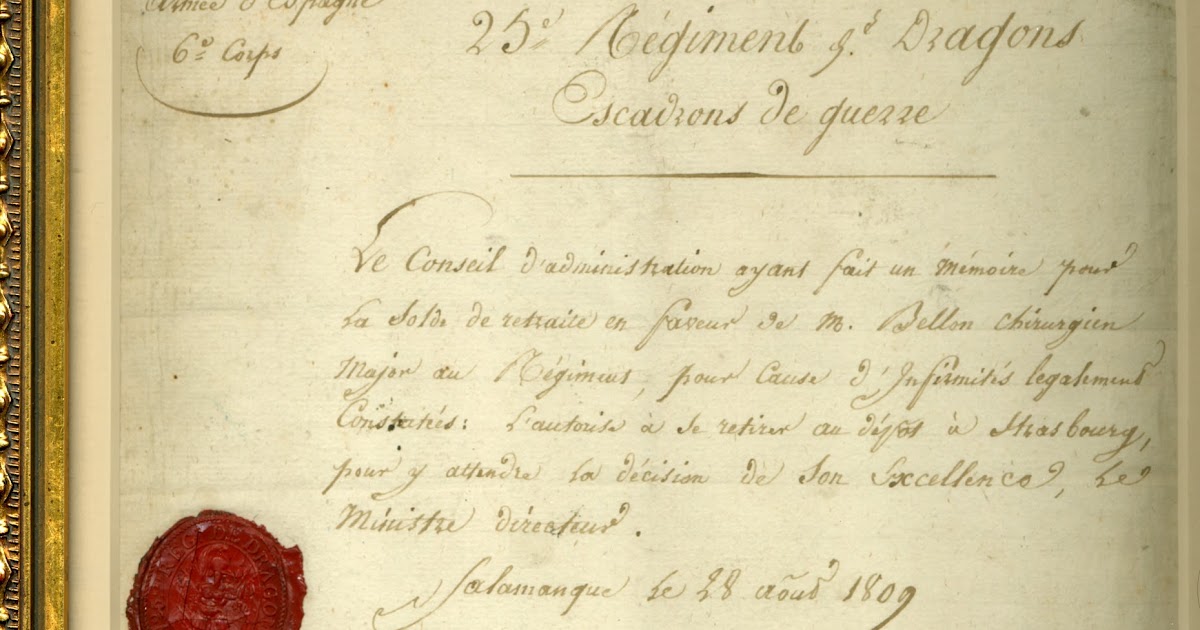 Armée d'Espagne
6e Corps
25e Régiment de Dragons
Escadrons de guerre
Le Conseil d'administration ayant fait un Mémoire pour
la Solde de retraite en faveur de M. Bellon chirurgien
Major au Régiment, pour Cause d'Infirmités légalement
Constatées: L'autorise à se retirer au dépôt à Strasbourg,
pour y attendre la décision de Son Excellence, Le
Ministre directeur.
Salamanque le 28 août 1809
DE DRAGONS